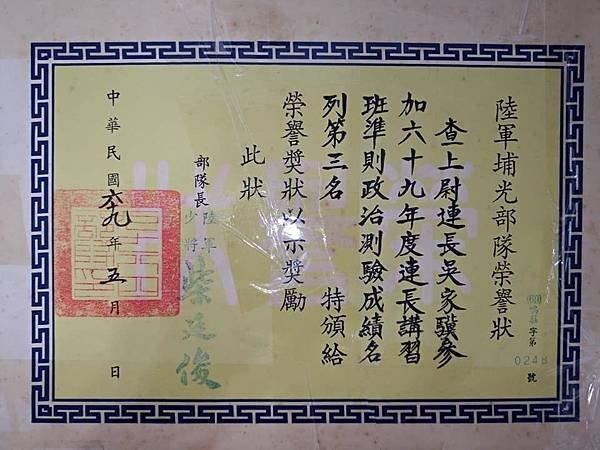 陸軍埔光部隊榮譽狀
字第0248號
查上尉連長吳家驥參
加六十九年度連長講習
班準則政治測驗成績名
列第三名　特頒給
榮譽獎狀以示獎勵
此狀
部隊長
陸軍
少將
柴廷俊
中華民國六九年五月　日